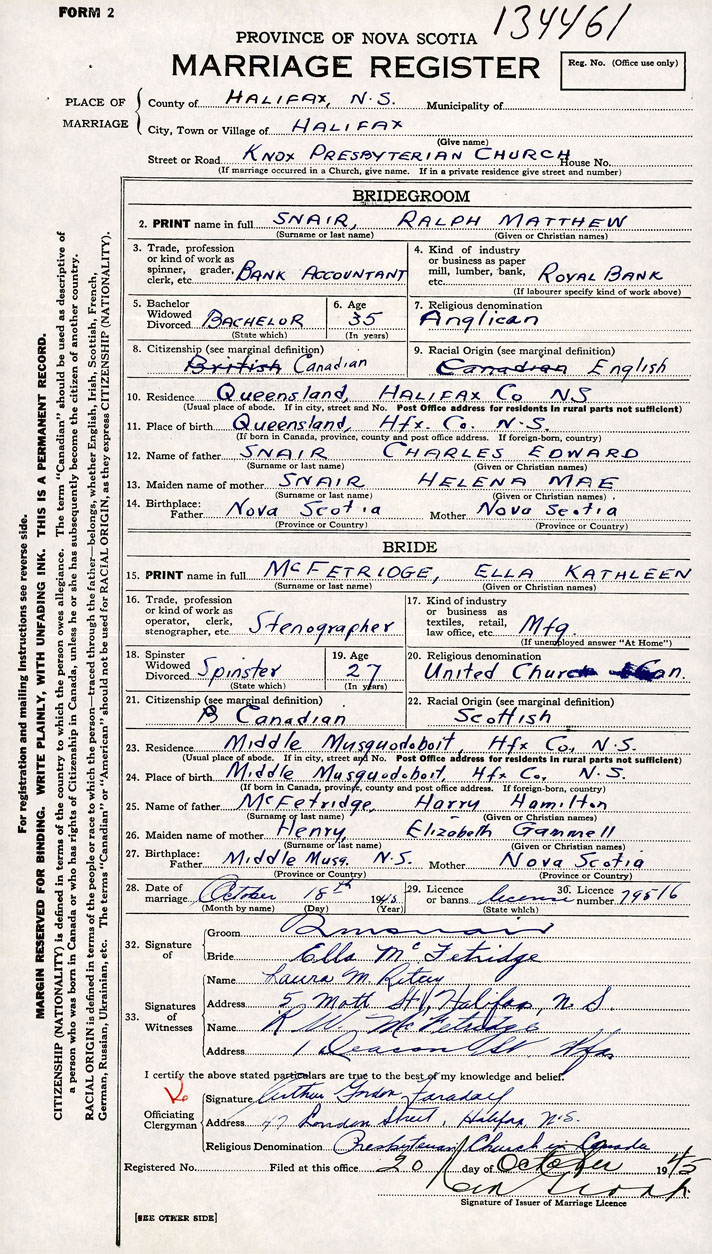 FORM 2
134461
PROVINCE OF NOVA SCOTIA
MARRIAGE REGISTER
Reg. No. (Office use only)
PLACE OF MARRIAGE
County of HALIFAX, N.S. Municipality of
City, Town or Village of HALIFAX
(Give name)
Street or Road KNOX PRESBYTERIAN CHURCH House No.
(If marriage occurred in a Church, give name. If in a private residence give street and number)
BRIDEGROOM
2. PRINT name in full SNAIR, RALPH MATTHEW
(Surname or last name) (Given or Christian names)
3. Trade, profession or kind of work as spinner, grader, clerk, etc. BANK ACCOUNTANT
4. Kind of industry or business as paper mill, lumber, bank, etc. ROYAL BANK
(If labourer specify kind of work above)
5. Bachelor Widowed Divorced BACHELOR
(State which)
6. Age 35
(In years)
7. Religious denomination Anglican
8. Citizenship (see marginal definition) British Canadian
9. Racial Origin (see marginal definition) Canadian English
10. Residence Queensland, HALIFAX Co NS
(Usual place of abode. If in city, street and No. Post Office address for residents in rural parts not sufficient)
11. Place of birth Queensland, Hfx. Co. N.S.
(If born in Canada, province, county and post office address. If foreign-born, country)
12. Name of father SNAIR CHARLES EDWARD
(Surname or last name) (Given or Christian names)
13. Maiden name of mother SNAIR HELENA MAE
(Surname or last name) (Given or Christian names)
14. Birthplace: Father Nova Scotia Mother Nova Scotia
(Province or Country) (Province or Country)
BRIDE
15. PRINT name in full McFETRIDGE, ELLA KATHLEEN
(Surname or last name) (Given or Christian names)
16. Trade, profession or kind of work as operator, clerk, stenographer, etc. Stenographer
17. Kind of industry or business as textiles, retail, law office, etc. Mfg.
(If unemployed answer "At Home")
18. Spinster Widowed Divorced Spinster
(State which)
19. Age 27
(In years)
20. Religious denomination United Church Can.
21. Citizenship (see marginal definition) B Canadian
22. Racial Origin (see marginal definition) Scottish
23. Residence Middle Musquodoboit, Hfx Co., N.S.
(Usual place of abode. If in city, street and No. Post Office address for residents in rural parts not sufficient)
24. Place of birth Middle Musquodoboit, Hfx Co. N.S.
(If born in Canada, province, county and post office address. If foreign-born, country)
25. Name of father McFetridge, Harry Hamilton
(Surname or last name) (Given or Christian names)
26. Maiden name of mother Henry Elizabeth Gammell
(Surname or last name) (Given or Christian names)
27. Birthplace: Father Middle Musq. N.S. Mother Nova Scotia
(Province or Country) (Province or Country)
28. Date of marriage October 18th 1945
(Month by name) (Day) (Year)
29. Licence or banns license
(State which)
30. Licence number 79516
32. Signature of
Groom
Bride Ella McFetridge
33. Signatures of Witnesses
Name Laura M.
Address 5 Mott St., Halifax, N.S.
Name R W McFetridge
Address 1 Deacon St Hfx
I certify the above stated particulars are true to the best of my knowledge and belief.
Officiating Clergyman
Signature Arthur Gordon Faraday
Address 47 London Street, Halifax N.S.
Religious Denomination Presbyterian Church in Canada
Registered No. Filed at this office 20 day of October 1945
Signature of Issuer of Marriage Licence
[SEE OTHER SIDE]
For registration and mailing instructions see reverse side.
MARGIN RESERVED FOR BINDING. WRITE PLAINLY, WITH UNFADING INK. THIS IS A PERMANENT RECORD.
CITIZENSHIP (NATIONALITY) is defined in terms of the country to which the person owes allegiance. The term "Canadian" should be used as descriptive of
a person who was born in Canada or who has rights of Citizenship in Canada, unless he or she has subsequently become the citizen of another country.
RACIAL ORIGIN is defined in terms of the people or race to which the person—traced through the father—belongs, whether English, Irish, Scottish, French,
German, Russian, Ukrainian, etc. The terms "Canadian" or "American" should not be used for RACIAL ORIGIN, as they express CITIZENSHIP (NATIONALITY).